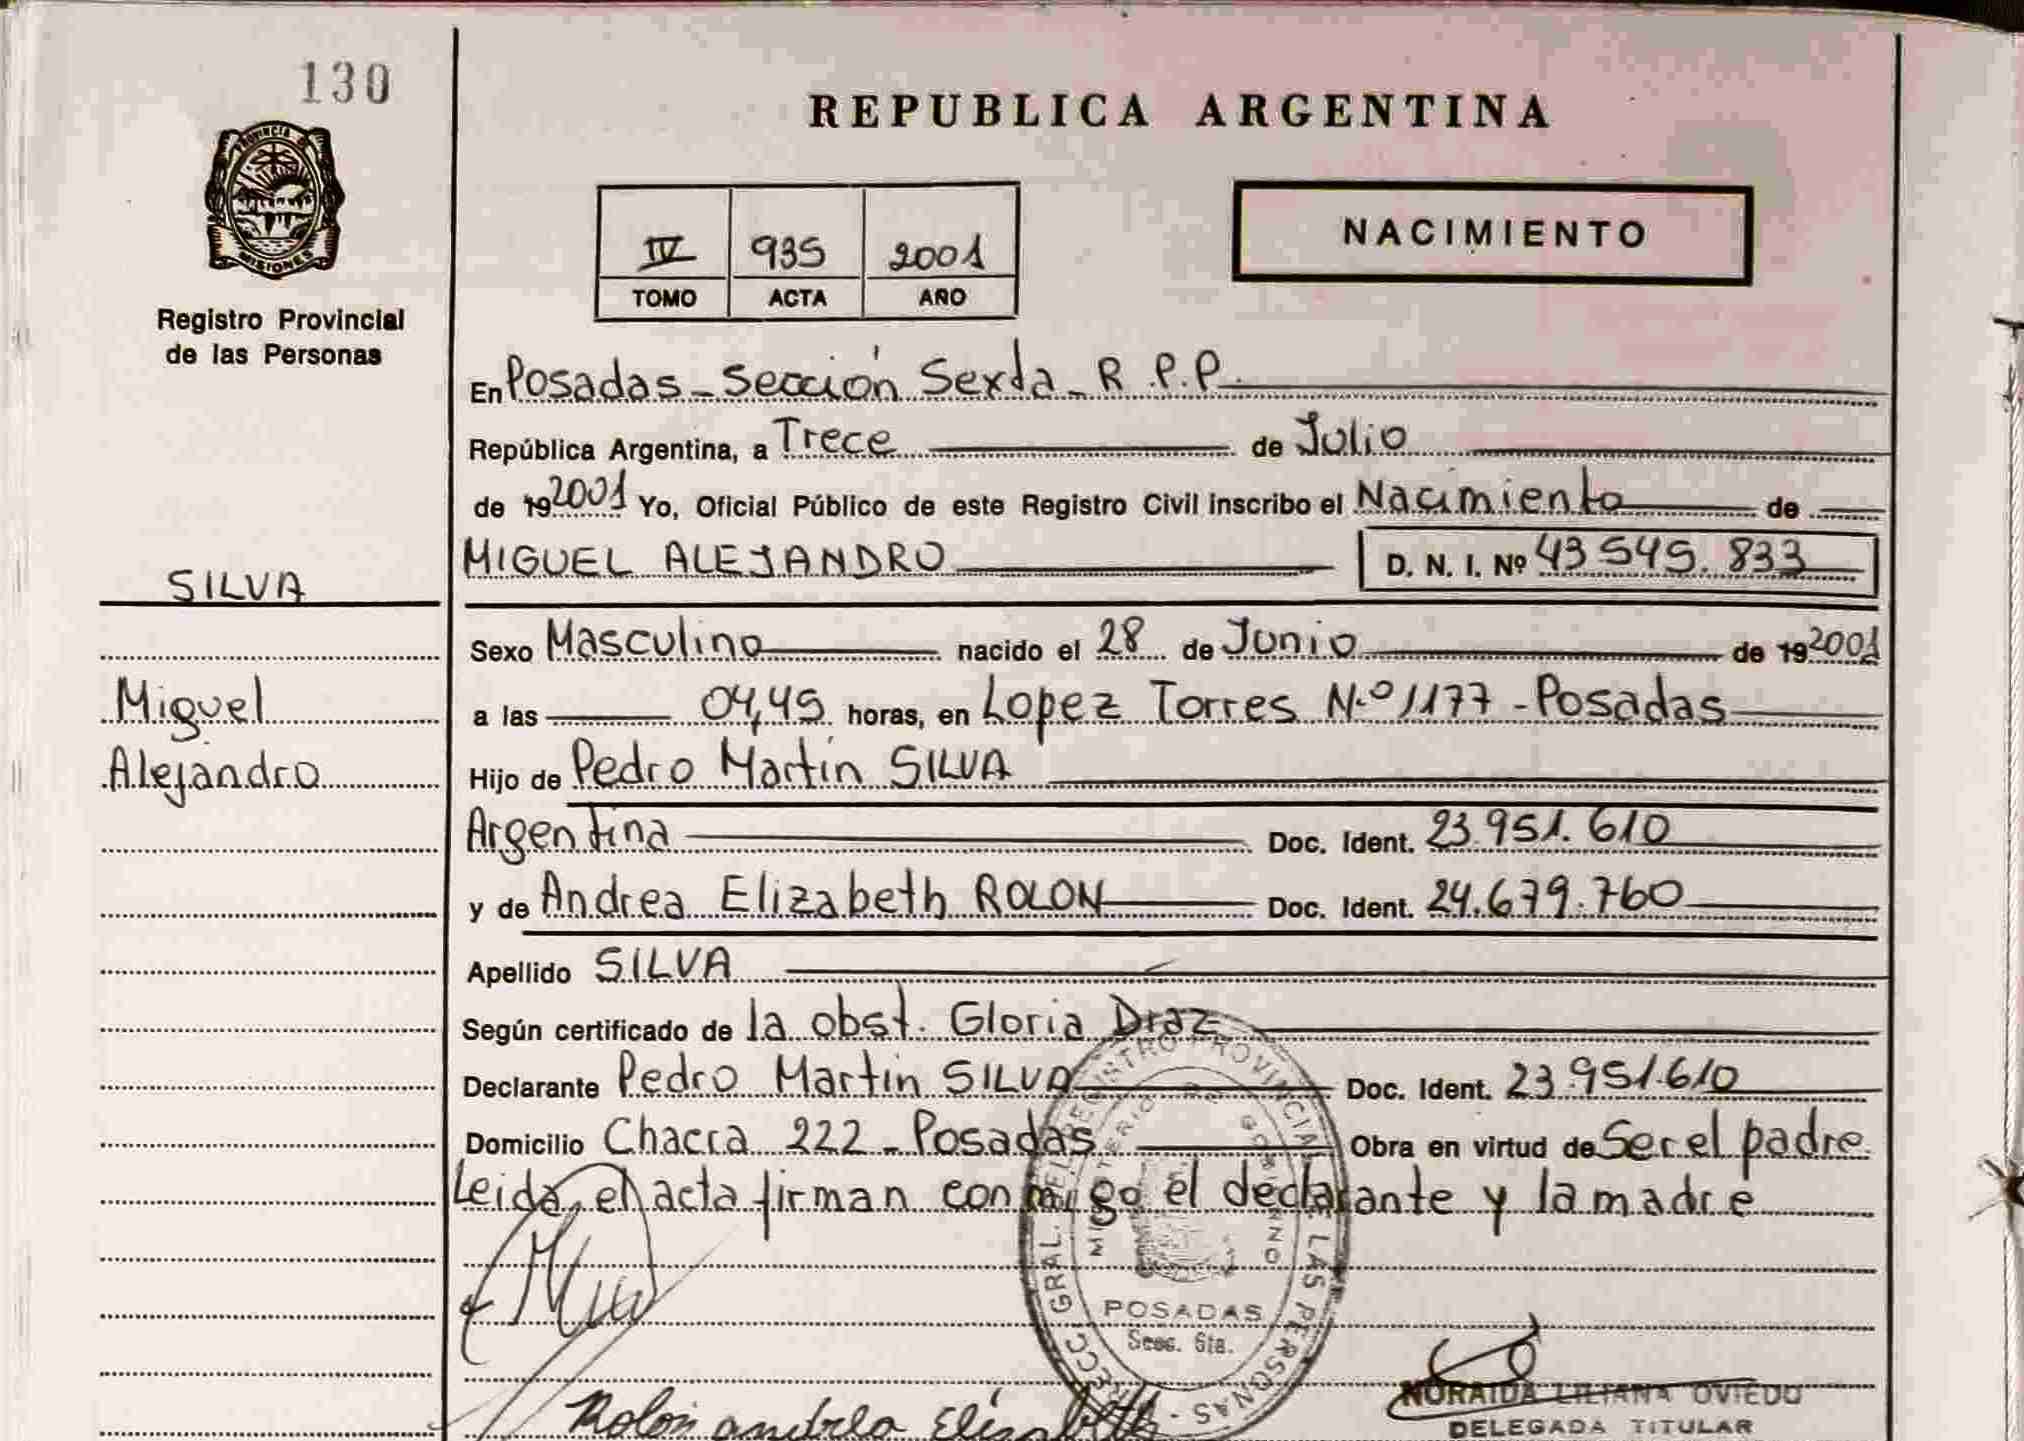 130
REPUBLICA ARGENTINA
PROVINCIA D
MISIONES
Registro Provincial
de las Personas
IV 935 2001
TOMO ACTA AÑO
NACIMIENTO
En Posadas - Sección Sexta - R.P.P.
República Argentina, a Trece de Julio
de 19 2001 Yo, Oficial Público de este Registro Civil inscribo el Nacimiento de
MIGUEL ALEJANDRO D. N. I. Nº 43 545. 833
SILVA
Miguel
Alejandro
Sexo Masculino nacido el 28 de Junio de 19 2001
a las 04,45 horas, en Lopez Torres N.º 1177 - Posadas
Hijo de Pedro Martín SILVA
Argentina Doc. Ident. 23.951.610
y de Andrea Elizabeth ROLON Doc. Ident. 24.679.760
Apellido SILVA
Según certificado de la obst. Gloria Diaz
Declarante Pedro Martin SILVA Doc. Ident. 23.951.610
Domicilio Chacra 222 - Posadas Obra en virtud de Ser el padre
Leida el acta firman conmigo el declarante y la madre
DIRECC. GRAL. DEL REGISTRO PROVINCIAL DE LAS PERSONAS
MINISTERIO DE GOBIERNO
POSADAS
Secc. 6ta.
Rolon andrea Elizabeth
NORAIDA LILIANA OVIEDO
DELEGADA TITULAR